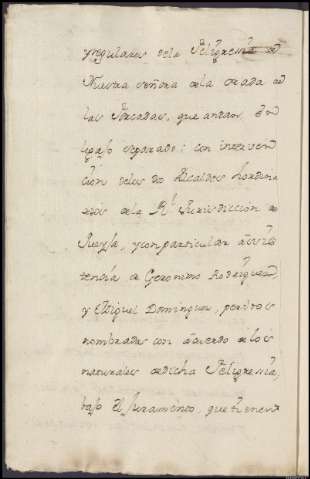 y regulares de la Feligresia de
Nuestra señora de la Grada de
las Arcadas, que andan en
legajo separado: con interven
cion de los dos Alcaldes hordina
rios de la Rl. Jurisdiccion de
y con particular asis
tencia de Geronimo Rodriguez
y Miguel Dominguez, peritos
nombrados con acuerdo de los
naturales de dicha Feligresia,
bajo el juramento, que tienen